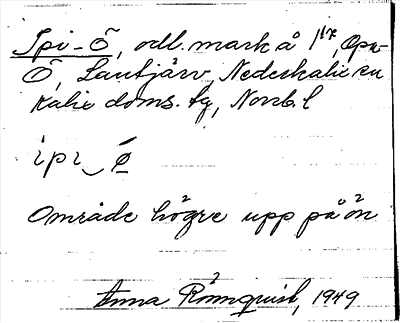 Ipi-Ö, odl. mark å 1¹⁷, Opu-
Ö, Lantjärv, Nederkalix sn
Kalix doms. tg, Norrb. l
ipi‿ö́
Område högre upp på ön
Anna Rönnquist, 1949